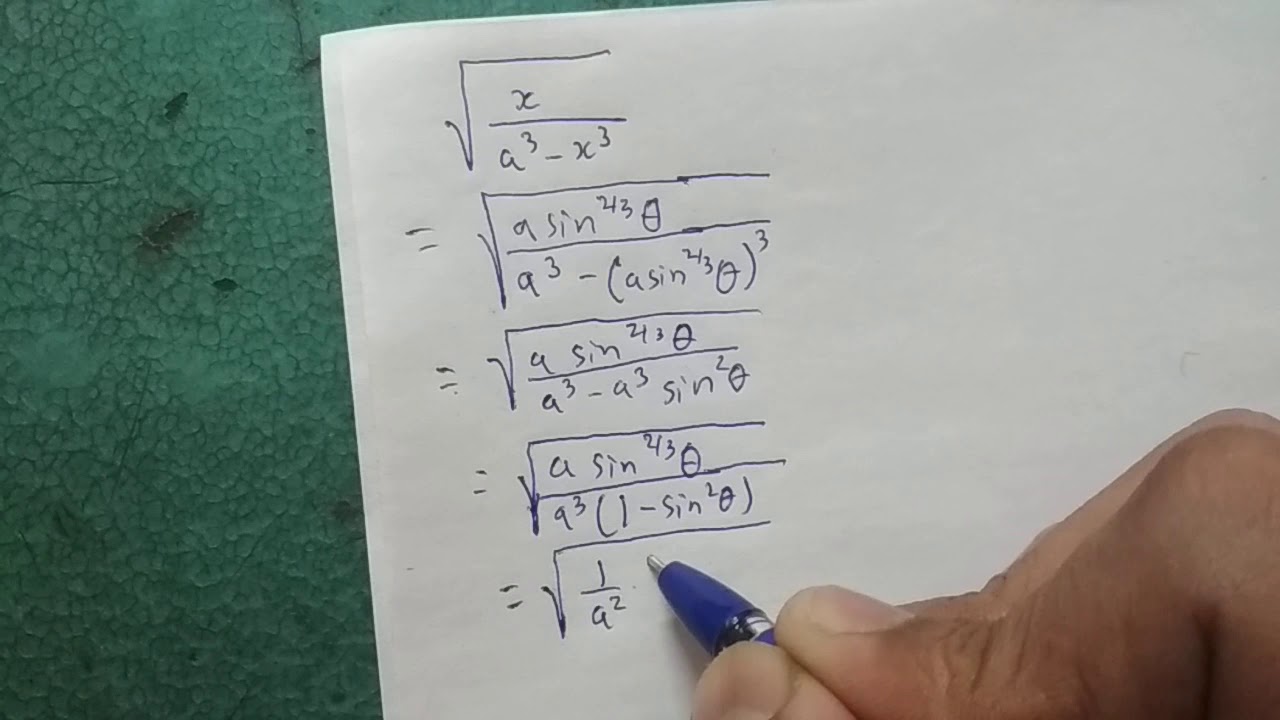 √(x/(a³ - x³))
= √(a sin^(2/3) θ/(a³ - (a sin^(2/3) θ)³))
= √(a sin^(2/3) θ/(a³ - a³ sin² θ))
= √(a sin^(2/3) θ/(a³ (1 - sin² θ)))
= √(1/a² ·